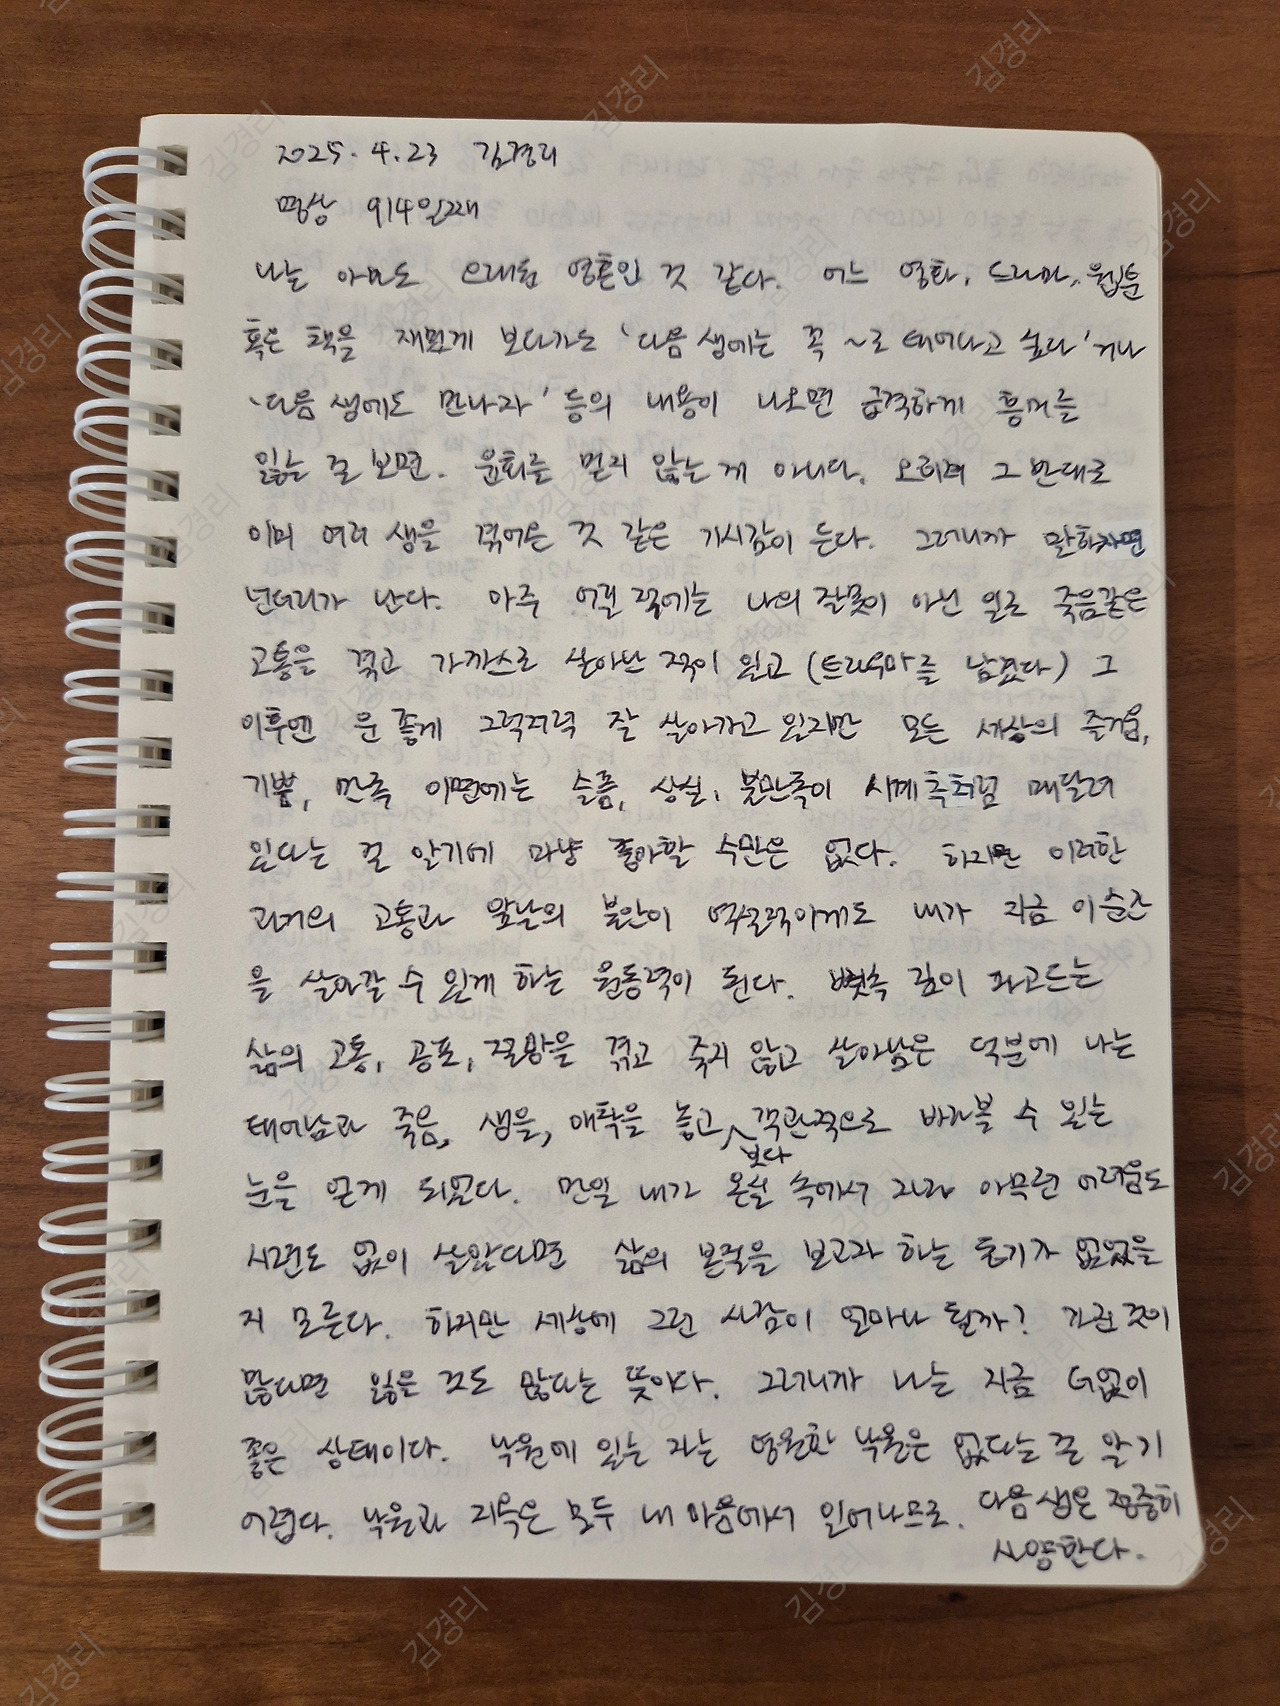 2025. 4. 23 김경리
명상 914일째
나는 아마도 오래된 영혼인 것 같다. 어느 영화, 드라마, 웹툰
혹은 책을 재밌게 보다가는 '다음 생에는 꼭 ~로 태어나고 싶다' 거나
'다음 생에도 만나자' 등의 내용이 나오면 급격하게 흥미를
잃는 걸 보면. 윤회를 믿지 않는 게 아니다. 오히려 그 반대로
이미 여러 생을 겪어온 것 같은 기시감이 든다. 그러니까 말하자면
넌더리가 난다. 아주 어릴 적에는 나의 잘못이 아닌 일로 죽음같은
고통을 겪고 가까스로 살아난 적이 있고 (트라우마를 남겼다) 그
이후엔 운 좋게 그럭저럭 잘 살아가고 있지만 모든 세상의 즐거움,
기쁨, 만족 이면에는 슬픔, 상실, 불만족이 시계추처럼 매달려
있다는 걸 알기에 마냥 좋아할 수만은 없다. 하지만 이러한
과거의 고통과 앞날의 불안이 역설적이게도 내가 지금 이 순간
을 살아갈 수 있게 하는 원동력이 된다. 뼛속 깊이 파고드는
삶의 고통, 공포, 절망을 겪고 죽지 않고 살아남은 덕분에 나는
태어남과 죽음, 생을, 애착을 놓고 보다 객관적으로 바라볼 수 있는
눈을 얻게 되었다. 만일 내가 온실 속에서 자라 아무런 어려움도
시련도 없이 살았다면 삶의 본질을 보고자 하는 동기가 없었을
지 모른다. 하지만 세상에 그런 사람이 얼마나 될까? 가진 것이
많다면 잃을 것도 많다는 뜻이다. 그러니까 나는 지금 더없이
좋은 상태이다. 낙원에 있는 자는 영원한 낙원은 없다는 걸 알기
어렵다. 낙원과 지옥은 모두 내 마음에서 일어나므로. 다음 생은 정중히
사양한다.